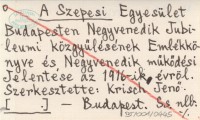 A Szepesi Egyesület
Budapesten Negyvenedik Jubi-
leumi közgyülésének Emlékkö-
nyve és Negyvenedik működési
Jelentése az 1916-ik évről.
Szerkesztette: Krisch Jenő.
[ ] — Budapest. Ss. nlb.